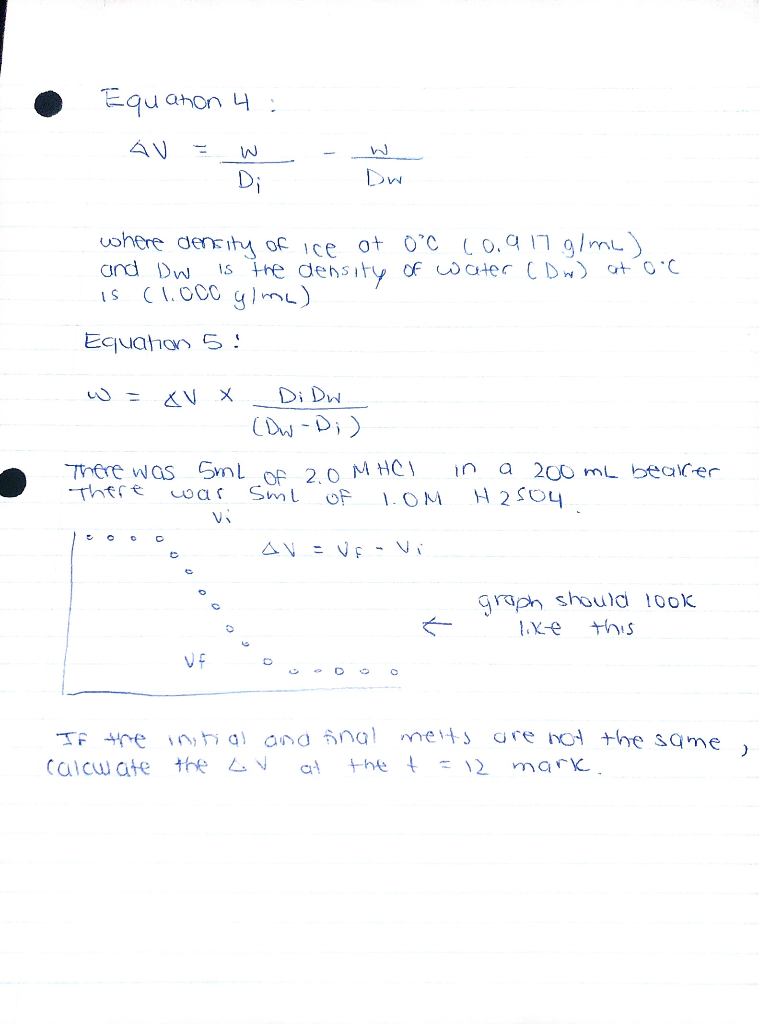 Equation 4 :
ΔV = W/Di - W/Dw
where density of ice at 0°C (0.917 g/mL)
and Dw is the density of water (Dw) at 0°C
is (1.000 g/mL)
Equation 5 :
W = ΔV x DiDw/(Dw-Di)
There was 5mL of 2.0 M HCl in a 200 mL beaker
There was 5mL of 1.0M H2SO4.
Vi
ΔV = VF - Vi
graph should look
← like this
VF
IF the initial and final melts are not the same,
calculate the ΔV at the t = 12 mark.